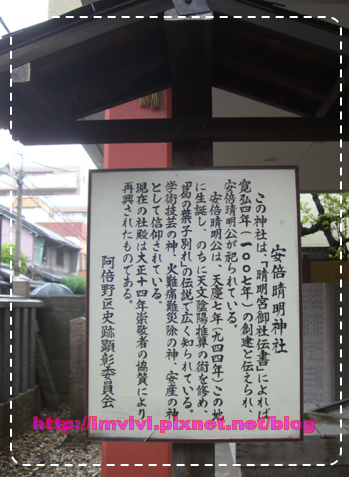 安倍晴明神社
この神社は、「晴明宮御社伝書」によれば
寛弘四年(一〇〇七年)の創建と伝えられ、
安倍晴明公が祀られている。
安倍晴明公は、天慶七年(九四四年)この地
に生誕し、のちに天文陰陽推算の術を修め、
「葛の葉子別れ」の伝説で広く知られている。
学術技芸の神、火難痛難災除の神、安産の神
として信仰されている。
現在の社殿は大正十四年崇敬者の協賛により
再興されたものである。
阿倍野区史跡顕彰委員会
http://imvivi.pixnet.net/blog